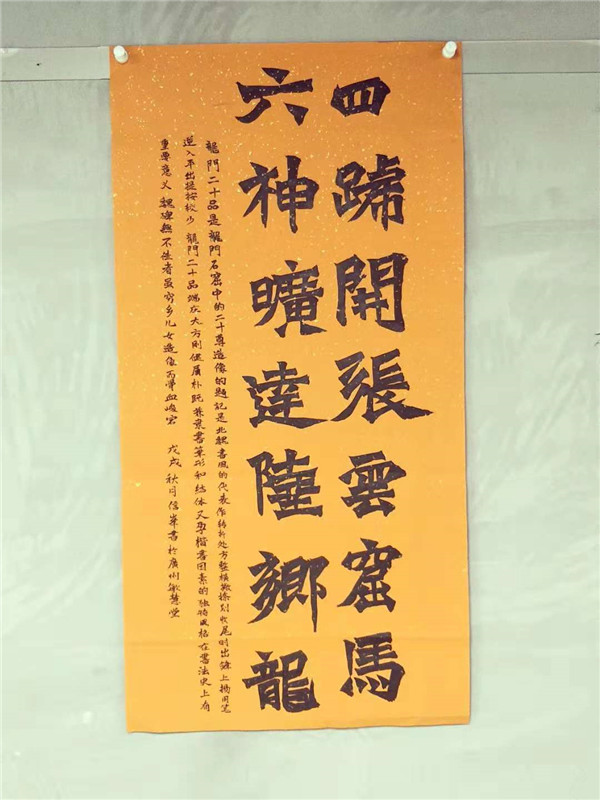 四蹄開張雲窟馬
六神曠達陸鄉龍
龍門二十品是龍門石窟中的二十尊造像的題記是北魏書風的代表作轉折處方整橫撇捺到收尾时出鋒上揚用笔
逆入平出提按较少龍門二十品端庄大方刚健質朴既兼隶書筆形和结体又孕楷書因素的独特風格在書法史上有
重要意义魏碑無不佳者虽穷乡儿女造像而骨血峻宕
戊戌秋月信華書於廣州敏慧堂